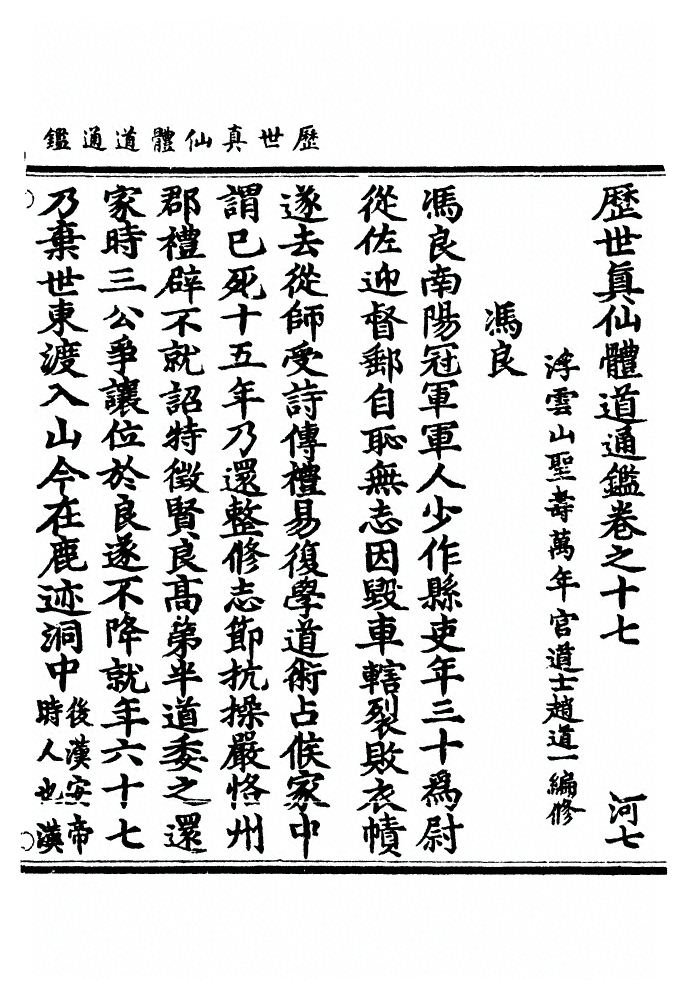 歷世真仙體道通鑑
歷世眞仙體道通鑑卷之十七 河七
浮雲山聖壽萬年宮道士趙道一編修
馮良
馮良南陽冠軍軍人少作縣吏年三十爲尉
從佐迎督郵自恥無志因毀車轄裂敗衣幘
遂去從師受詩傳禮易復學道術占候家中
謂已死十五年乃還整修志節抗操嚴恪州
郡禮辟不就詔特徵賢良高第半道委之還
家時三公爭讓位於良遂不降就年六十七
乃棄世東渡入山今在鹿迹洞中後漢安帝時人也漢